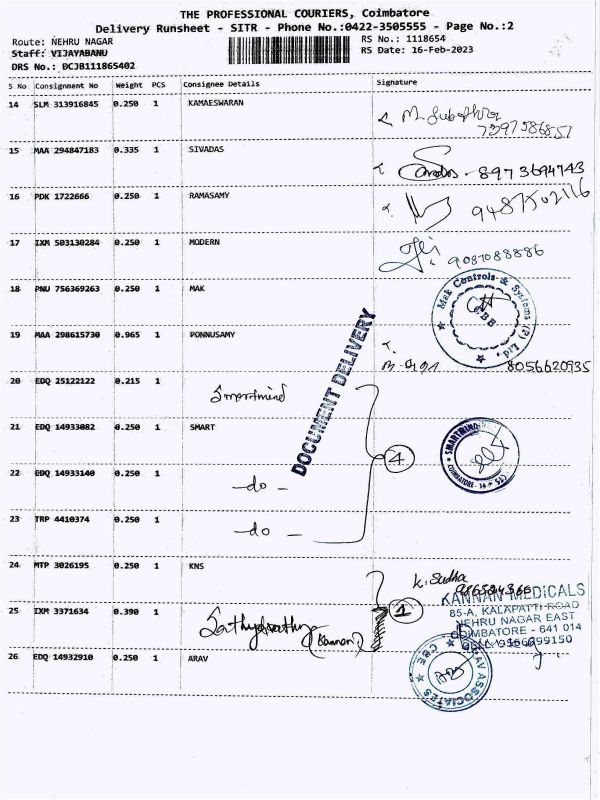 THE PROFESSIONAL COURIERS, Coimbatore
Delivery Runsheet - SITR - Phone No.:0422-3505555 - Page No.:2
Route: NEHRU NAGAR
RS No.: 1118654
Staff: VIJAYABANU
RS Date: 16-Feb-2023
DRS No.: DCJB111865402
S No Consignment No Weight PCS Consignee Details Signature
14 SLM 313916845 0.250 1 KAMAESWARAN
7397586851
15 MAA 294847183 0.335 1 SIVADAS
8973694743
16 PDK 1722666 0.250 1 RAMASAMY
9487502116
17 IXM 503130284 0.250 1 MODERN
9087088886
18 PNU 756369263 0.250 1 MAK
Mak Controls & Systems (P) Ltd.
CBE
19 MAA 298615730 0.965 1 PONNUSAMY
8056620935
DOCUMENT DELIVERY
20 EDQ 25122122 0.215 1 Smartmind
21 EDQ 14933082 0.250 1 SMART
4
22 EDQ 14933140 0.250 1 -do-
23 TRP 4410374 0.250 1 -do-
24 MTP 3026195 0.250 1 KNS
K. Sudha
KANNAN MEDICALS
85-A, KALAPATTI ROAD
NEHRU NAGAR EAST
COIMBATORE - 641 014
25 IXM 3371634 0.390 1
1
26 EDQ 14932910 0.250 1 ARAV
ARAV ASSOCIATES
CBE